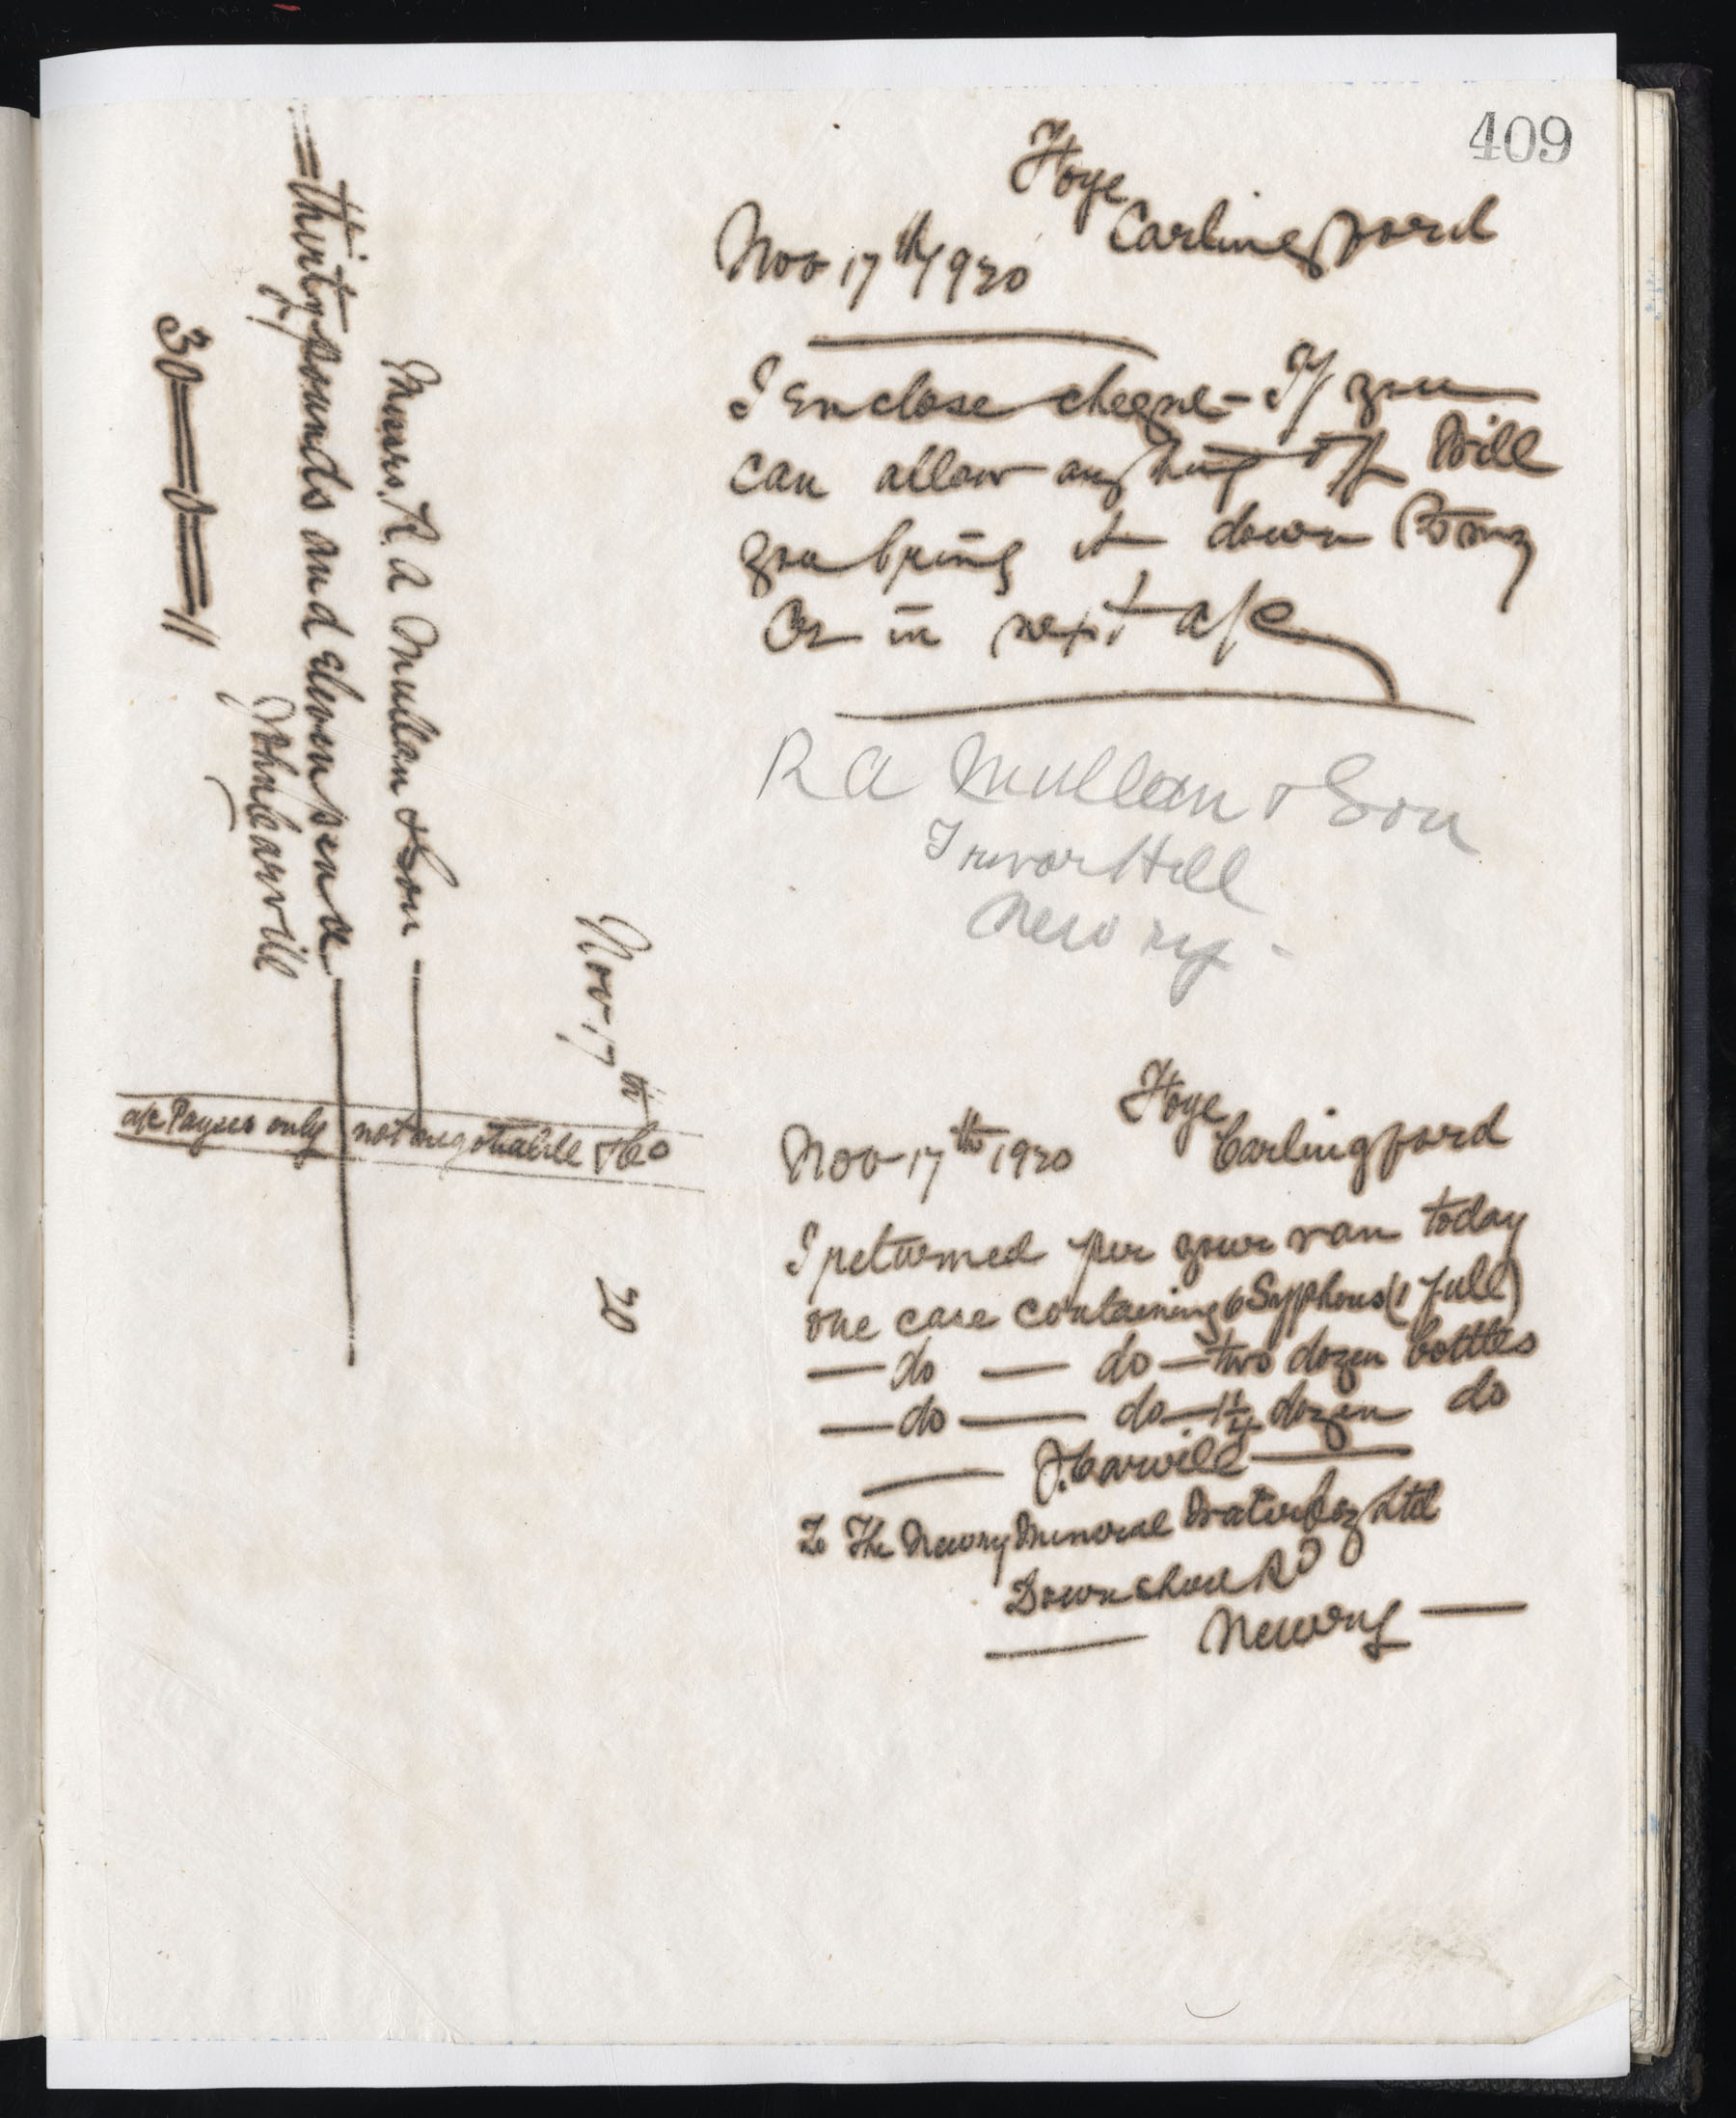 409
Foye
Carlingford
Nov 17th/1920
I Enclose cheque - If you
can allow anything off Will
you bring it down
Or in next a/c
R A Mullan & Son
Trevor Hill
Newry -
Foye
Carlingford
Nov 17th 1920
I returned per your van today
one case containing 6 Syphons (1 full)
— do — do — two dozen bottles
— do — do — 1 1/4 dozen do
J. Carvill
To The Newry Mineral Water Coy Ltd
Downshire Rd
Newry
Nov 17th 20
Messrs. R. A Mullan & Son
= thirty pounds and eleven pence
John Carvill
30 = 0 = 11
a/c Payees only not negotiable & Co